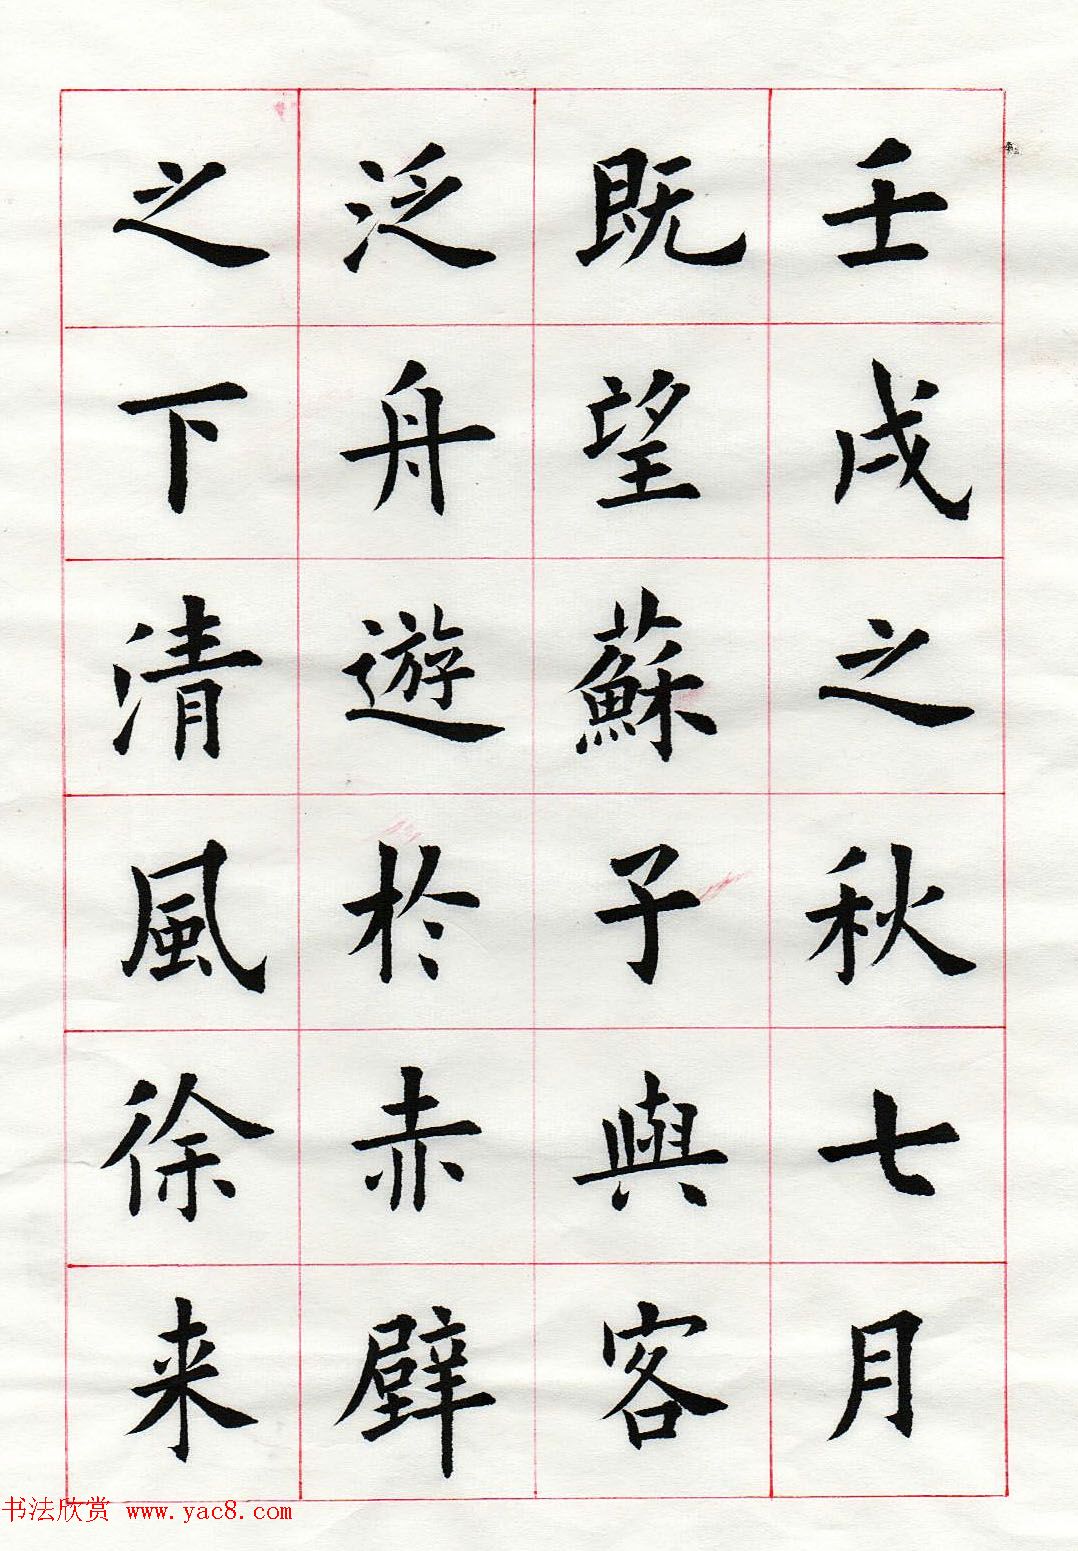 壬戌之秋七月
既望蘇子與客
泛舟遊於赤壁
之下清風徐来
书法欣赏 www.yac8.com